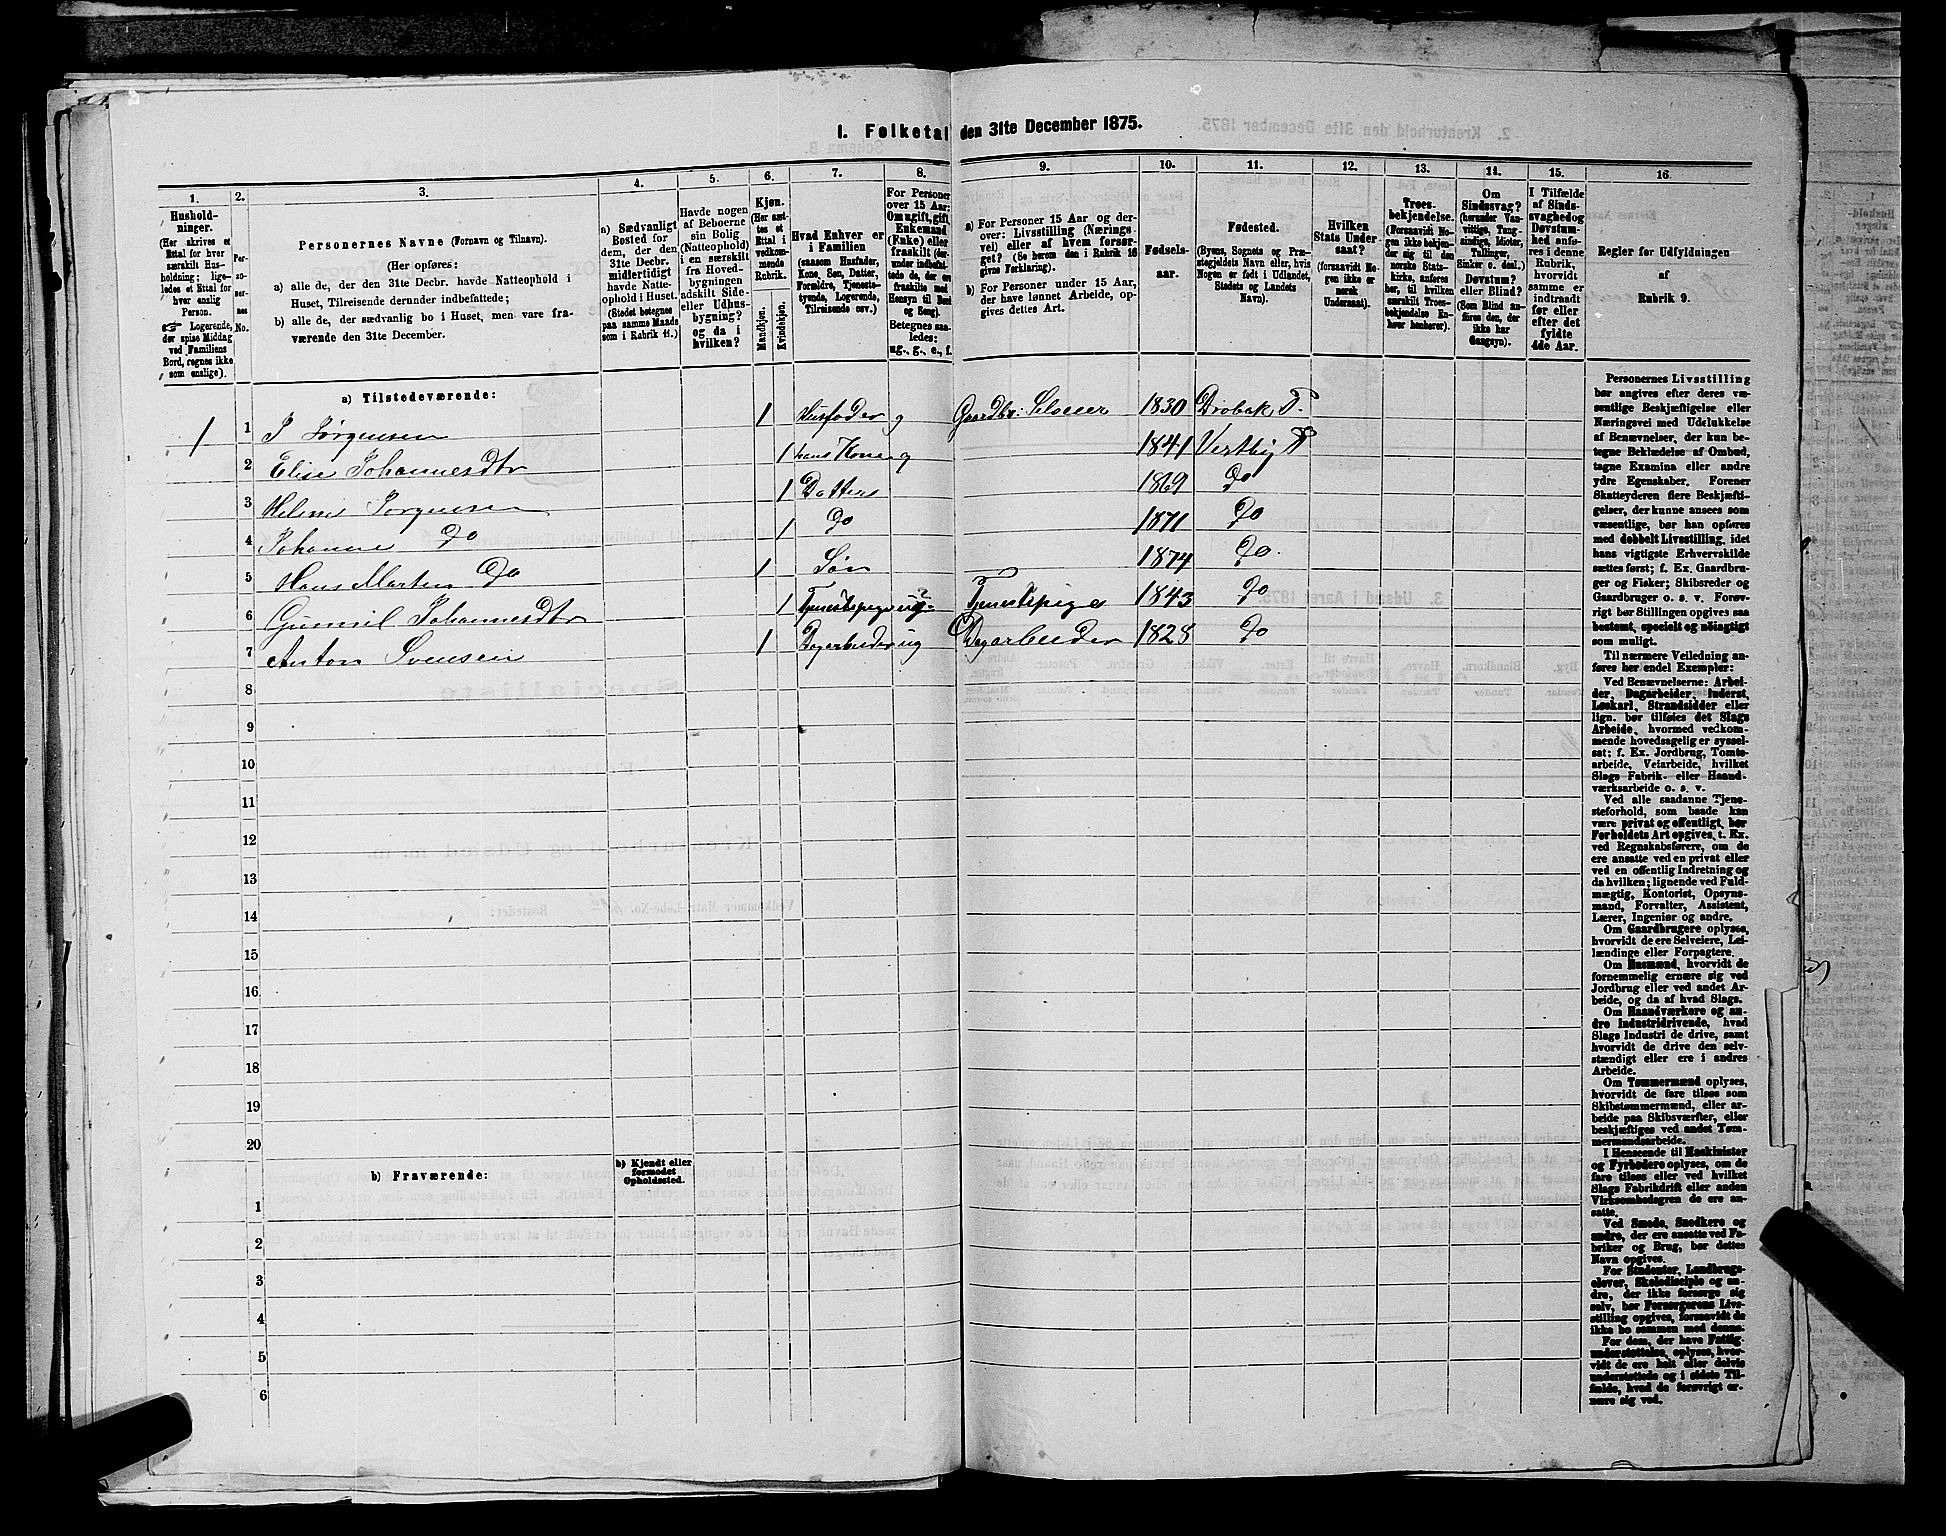 I. Folketal den 31te December 1875.
1.
2.
3.
4.
5.
6.
7.
8.
9.
10.
11.
12.
13.
14.
15.
16.
Hushold-
ninger.
(Her skrives et
Ettal for hver
særskilt Hus-
holdning; lige-
ledes et Ettal
for hver
enslig
Person.
☞ Logerende,
der spise Middag
ved Familiens
Bord, regnes ikke
som enslige).
Per-
so-
ner-
nes
No.
Personernes Navne (Fornavn og Tilnavn).
(Her opføres:
a) alle de, der den 31te Decbr. havde Natteophold i
Huset, Tilreisende derunder indbefattede;
b) alle de, der sædvanlig bo i Huset, men vare fra-
værende den 31te December.
a) Sædvanligt
Bosted for
dem, der den
31te Decbr.
midlertidigt
havde Natte-
ophold i Huset.
(Stedet betegnes
paa samme Maade
som i Rubrik 11.)
Havde nogen
af Beboerne
sin Bolig
(Natteophold)
i en særskilt
fra Hoved-
bygningen
adskilt Side-
eller Udhus-
bygning?
og da i
hvilken?
Kjøn.
(Her sæt-
tes et
Ettal i
vedkom-
mende
Rubrik.
Mandkjøn.
Kvindekjøn.
Hvad Enhver er
i Familien
(saasom Husfader,
Kone, Søn, Datter,
Forældre, Tjeneste-
tyende, Logerende,
Tilreisende osv.)
For Personer
over 15 Aar:
Om ugift, gift
Enkemand
(Enke) eller
fraskilt
Betegnes saa-
ledes:
ug., g., e., f.
a) For Personer 15 Aar og der-
over: Livsstilling (Nærings-
vei) eller af hvem forsør-
get? (Se herom den i Rubrik 16
gives Forklaring).
b) For Personer under 15 Aar,
der have lønnet Arbeide, op-
gives dettes Art.
Fødsels-
aar.
Fødested.
(Byens, Sognets og Præ-
stegjeldets Navn eller, hvis
Nogen er født i Udlandet,
Stedets og Landets
Navn).
Hvilken
Stats Under-
saat?
(forsaavidt No-
gen ikke er
norsk
Undersaat).
Troes-
bekjendelse.
(Forsaavidt No-
gen ikke bekjen-
der sig til den
norske Stats-
kirke, anføres
her, til hvilken
særskilt Troes-
bekjendelse En-
hver henhører).
Om
Sindssvag?
(herunder Van-
vittige, Tung-
sindige, Idioter,
Tullinger,
Sinker o. desl.)
Døvstum?
eller Blind?
(Som Blind an-
føres den, der
ikke har
Gangsyn).
I Tilfælde
af Sinds-
svaghed og
Døvstum-
hed anfø-
res i denne
Rubrik,
hvorvidt
samme er
indtraadt
før eller
efter det
fyldte
4de Aar.
Regler for Udfyldningen
af
Rubrik 9.
a) Tilstedeværende:
1 1 J Jørgensen 1 Husfader g Gaardbr: Seloeier 1830 Drøbak P.
2 Elise Johannesdtr 1 hans Kone g 1841 Vestby P
3 Helene Jørgensen 1 Datters 1869 Do
4 Johanne Do 1 Do 1871 Do
5 Hans Martin Do 1 Søn 1874 Do.
6 Gunnil Johannesdtr 1 Tjenestepige ug Tjenestepige 1843 Do
7 Anton Svensen 1 Dagarbeider ug Dagarbeider 1828 Do
8
9
10
11
12
13
14
15
16
17
18
19
20
b) Fraværende:
b) Kjendt eller
formodet
Opholdssted.
1
2
3
4
5
6
Personernes Livsstilling
bør angives efter deres væ-
sentlige Beskjæftigelse eller
Næringsvei med Udelukkelse
af Benævnelser, der kun be-
tegne Beklædelse af Ombud,
tagne Examina eller andre
ydre Egenskaber. Forener
Skatteyderen flere Beskjæfti-
gelser, der kunne ansees som
væsentlige, bør han opføres
med dobbelt Livsstilling, idet
hans vigtigste Erhvervskilde
sættes først; f. Ex. Gaardbru-
ger og Fisker; Skibsreder og
Gaardbruger o. s. v. Forøv-
rigt bør Stillingen opgives saa
bestemt, specielt og nøiagtigt
som muligt.
Til nærmere Veiledning an-
føres her endel Exempler:
Ved Benævnelserne: Arbei-
der, Dagarbeider, Inderst,
Løskarl, Strandsidder eller
lign. bør tilføies det Slags
Arbeide, hvormed vedkom-
mende hovedsagelig er syssel-
sat; f. Ex. Jordbrug, Tomte-
arbeide, Veiarbeide, hvilket
Slags Fabrik- eller Haand-
værksarbeide o. s. v.
Ved alle saadanne Tjene-
steforhold, som baade kan
være privat og offentligt, bør
Forholdets Art opgives, t. Ex.
ved Regnskabsførere, om de
ere ansatte ved en privat eller
ved en offentlig Indretning og
da hvilken; lignende ved Fuld-
mægtig, Kontorist, Opsyns-
mand, Forvalter, Assistent,
Lærer, Ingeniør og andre.
Om Gaardbrugere oplyses,
hvorvidt de ere Selveiere, Lei-
lændinge eller Forpagtere.
Om Husmænd, hvorvidt de
fornemmelig ernære sig ved
Jordbrug eller ved andet Ar-
beide, og da af hvad Slags.
Om Haandværkere og an-
dre Industridrivende, hvad
Slags Industri de drive, samt
hvorvidt de drive den selv-
stændigt eller ere i andres
Arbeide.
Om Tømmermænd oplyses,
hvorvidt de fare tilsøs som
Skibstømmermænd, eller ar-
beide paa Skibsværfter, eller
beskjæftiges ved andet Tøm-
mermandsarbeide.
I Henseende til Maskinister
og Fyrbødere oplyses, om de
fare tilsøs eller ved hvilket
Slags Fabrikdrift eller anden
Virksomhedsgren de ere an-
satte.
Ved Smede, Snedkere og
andre, der ere ansatte ved Fa-
briker og Brug, bør dettes
Navn opgives.
For Studenter, Landbrugs-
elever, Skoledisciple og an-
dre, der ikke forsørge sig
selv, bør Forsørgerens Livs-
stilling opgives, forsaavidt de
ikke bo sammen med denne.
For dem, der have Fattig-
understøttelse, oplyses, hvor-
vidt de ere helt eller delvis
understøttede og i sidste Til-
fælde, hvad de forøvrigt er-
nære sig ved.